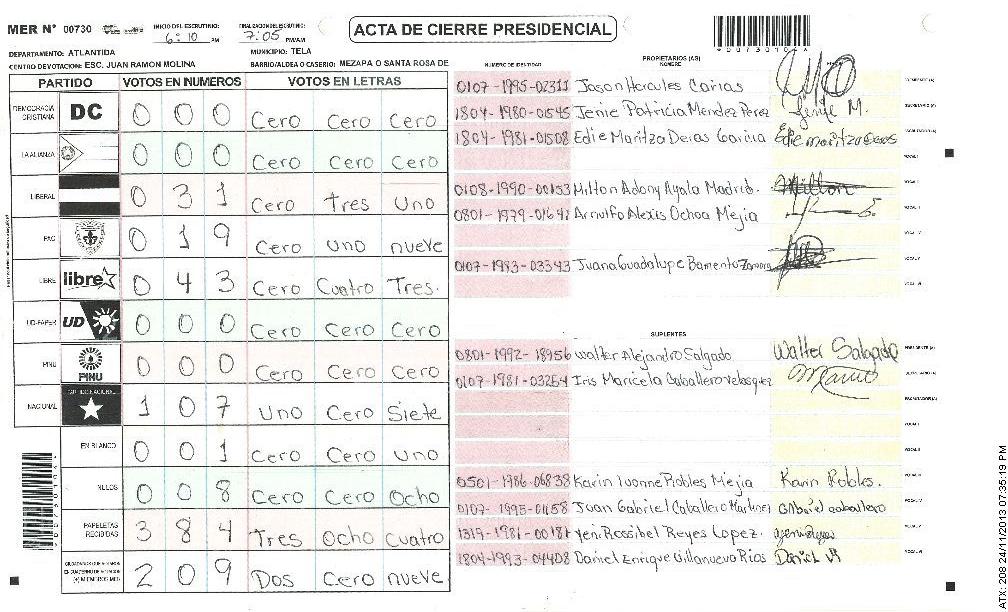 MER N° 00730
INICIO DEL ESCRUTINIO: 6:10 PM
FINALIZACIÓN DEL ESCRUTINIO: 7:05 PM/AM
ACTA DE CIERRE PRESIDENCIAL
DEPARTAMENTO: ATLANTIDA
MUNICIPIO: TELA
CENTRO DE VOTACION: ESC. JUAN RAMON MOLINA
BARRIO/ALDEA O CASERIO: MEZAPA O SANTA ROSA DE
PARTIDO VOTOS EN NUMEROS VOTOS EN LETRAS
DEMOCRACIA CRISTIANA DC 0 0 0 Cero Cero Cero
LA ALIANZA 0 0 0 Cero Cero Cero
LIBERAL 0 3 1 Cero Tres Uno
PAC 0 1 9 Cero uno nueve
LIBRE libre 0 4 3 Cero Cuatro Tres.
UD-FAPER UD 0 0 0 Cero Cero Cero
PINU PINU 0 0 0 Cero Cero Cero
NACIONAL PARTIDO NACIONAL 1 0 7 Uno Cero Siete
EN BLANCO 0 0 1 Cero Cero uno
NULOS 0 0 8 Cero Cero Ocho
PAPELETAS RECIBIDAS 3 8 4 Tres Ocho cuatro
2 0 9 Dos Cero nueve
NUMERO DE IDENTIDAD
PROPIETARIOS (AS)
NOMBRE
0107-1995-02311 Jason Hercules Carias
1804-1980-01545 Jenie Patricia Mendez Perez
1804-1981-01508 Edie Maritza Deras Garcia
0108-1990-00153 Milton Adony Ayala Madrid. Milton
0801-1979-01641 Arnulfo Alexis Ochoa Mejia
0107-1983-03343 Juana Guadalupe
SUPLENTES
0801-1992-18956 Walter Alejandro Salgado Walter Salgado
0107-1981-03264 Iris Maricela Caballero Velasquez
0501-1986-06838 Karin Ivonne Robles Mejia Karin Robles.
0107-1995-01158 Juan Gabriel Caballero Martinez Gabriel caballero
1319-1981-00187 Yeni Rossibel Reyes Lopez.
1804-1993-04408 Daniel Enrique Villanueva Rios
ATX: 208 24/11/2013 07:35:19 PM